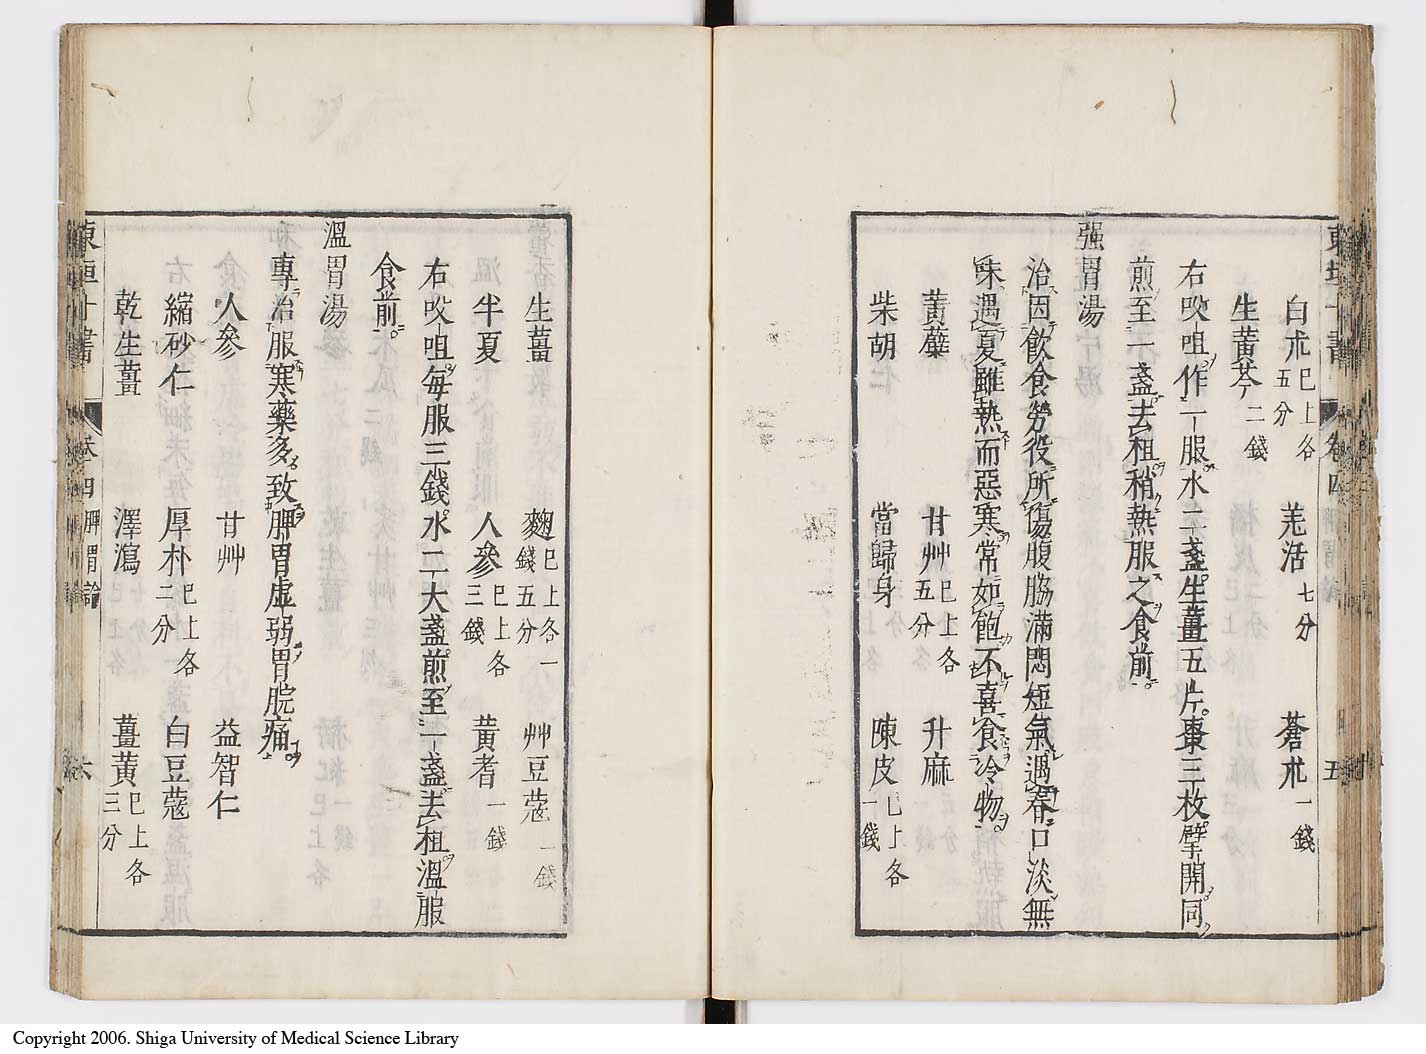 白朮已上各五分　羌活七分　蒼朮一錢
生黄芩二錢
右㕮咀作一服水二盞生薑五片棗三枚擘開同
煎至一盞去柤稍熱服之食前
强胃湯
治因飲食勞役所傷腹脇滿悶短氣遇春口淡無
味遇夏雖熱而惡寒常如飽不喜食冷物
黄蘗　甘艸已上各五分　升麻
柴胡　當歸身　陳皮已上各一錢
生薑　麴已上各一錢五分　艸豆蔻一錢
半夏　人參已上各三錢　黄耆一錢
右㕮咀每服三錢水二大盞煎至一盞去柤溫服
食前
溫胃湯
專治服寒藥多致脾胃虚弱胃脘痛
人參　甘艸　益智仁
縮砂仁　厚朴已上各二分　白豆蔻
乾生薑　澤瀉　薑黄已上各三分
卷四　脾胃論　六
Copyright 2006. Shiga University of Medical Science Library